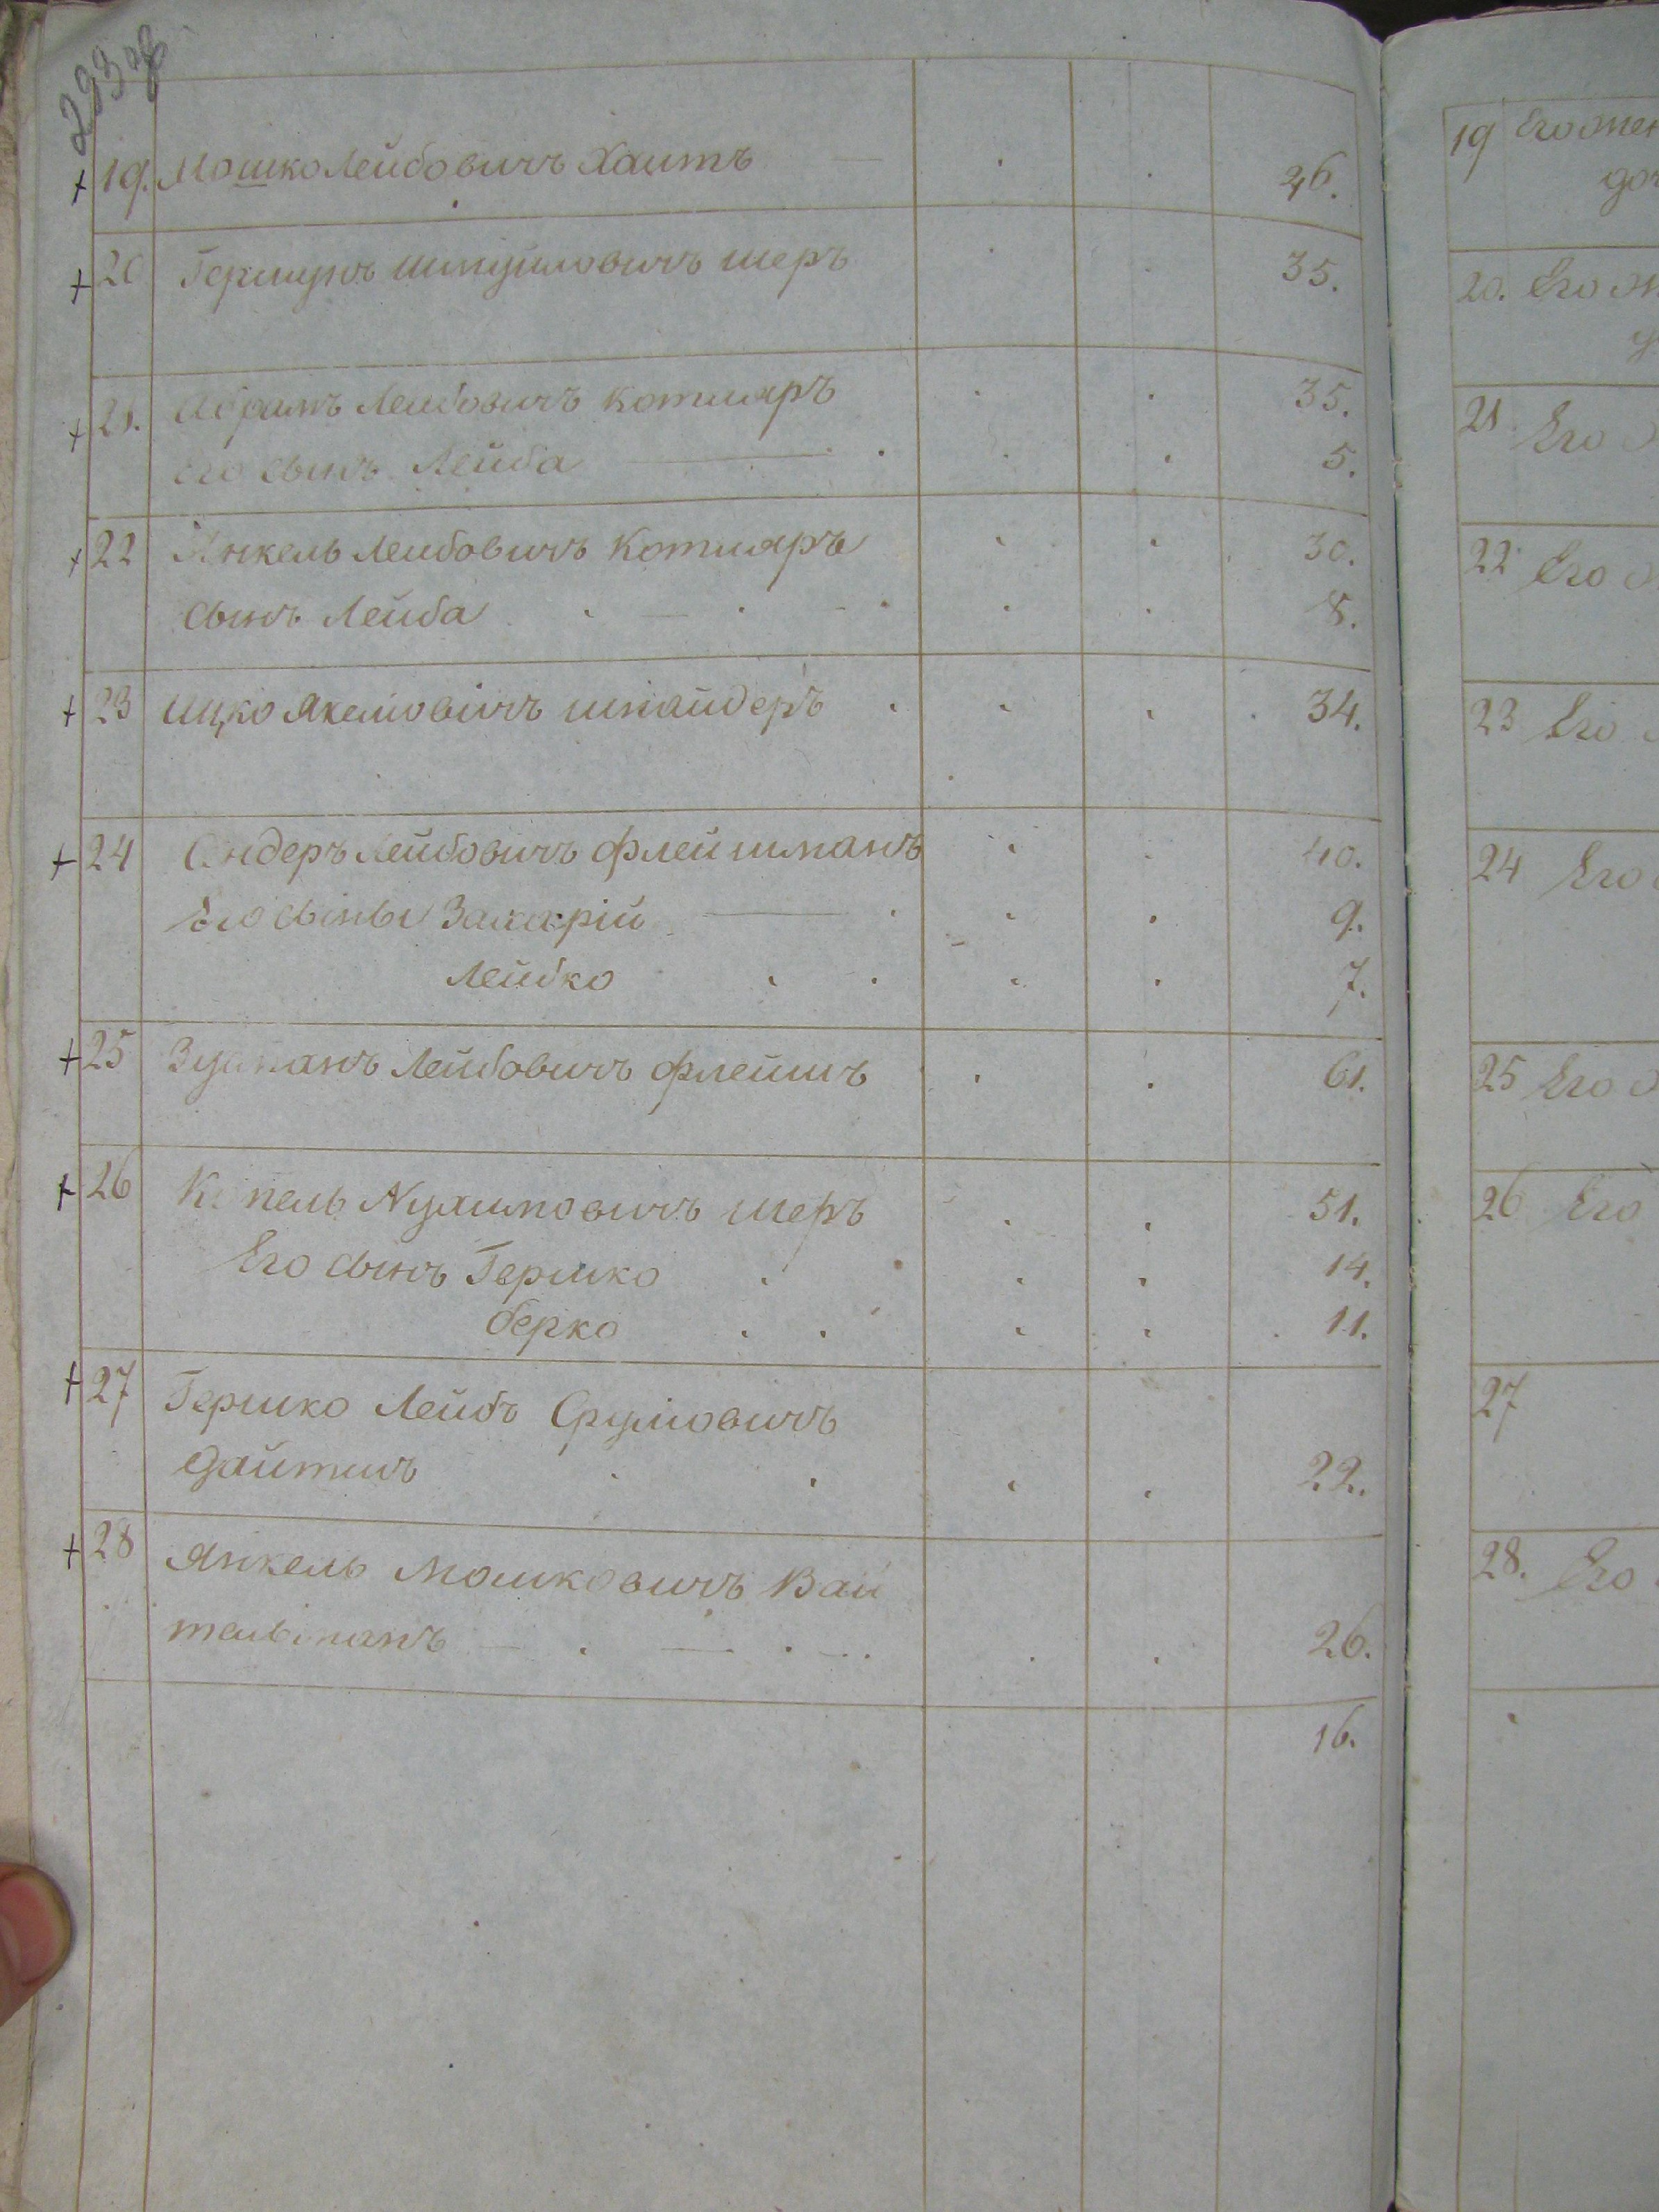 293 об
19. Мошко Лейбовичъ Хаитъ 46.
20 Гершунъ Шмуйловичъ шеръ 35.
21. Абрамъ Леибовичъ Котляръ 35.
его сынъ Лейба 5.
22 Янкель Леибовичъ Котляръ 30.
сынъ Лейба 8.
23 Ицко Яхелиовичъ шнайдеръ 34.
24 Сендеръ Лейбовичъ Флейшманъ 40.
Его сыны Захарій 9.
Лейбко 7.
25 Зусманъ Лейбовичъ Флейшъ 61.
26 Копель Нухимовичъ шеръ 51.
Его сынъ Гершко 14.
берко 11.
27 Гершко Лейбъ Сруліовичъ
Дайтшъ 22.
28 Янкель Мошковичъ Вай
тельманъ 26.
16.
19 Его
20. Его
21. Его
22 Его
23 Его
24 Его
25 Его
26 Его
27
28. Его